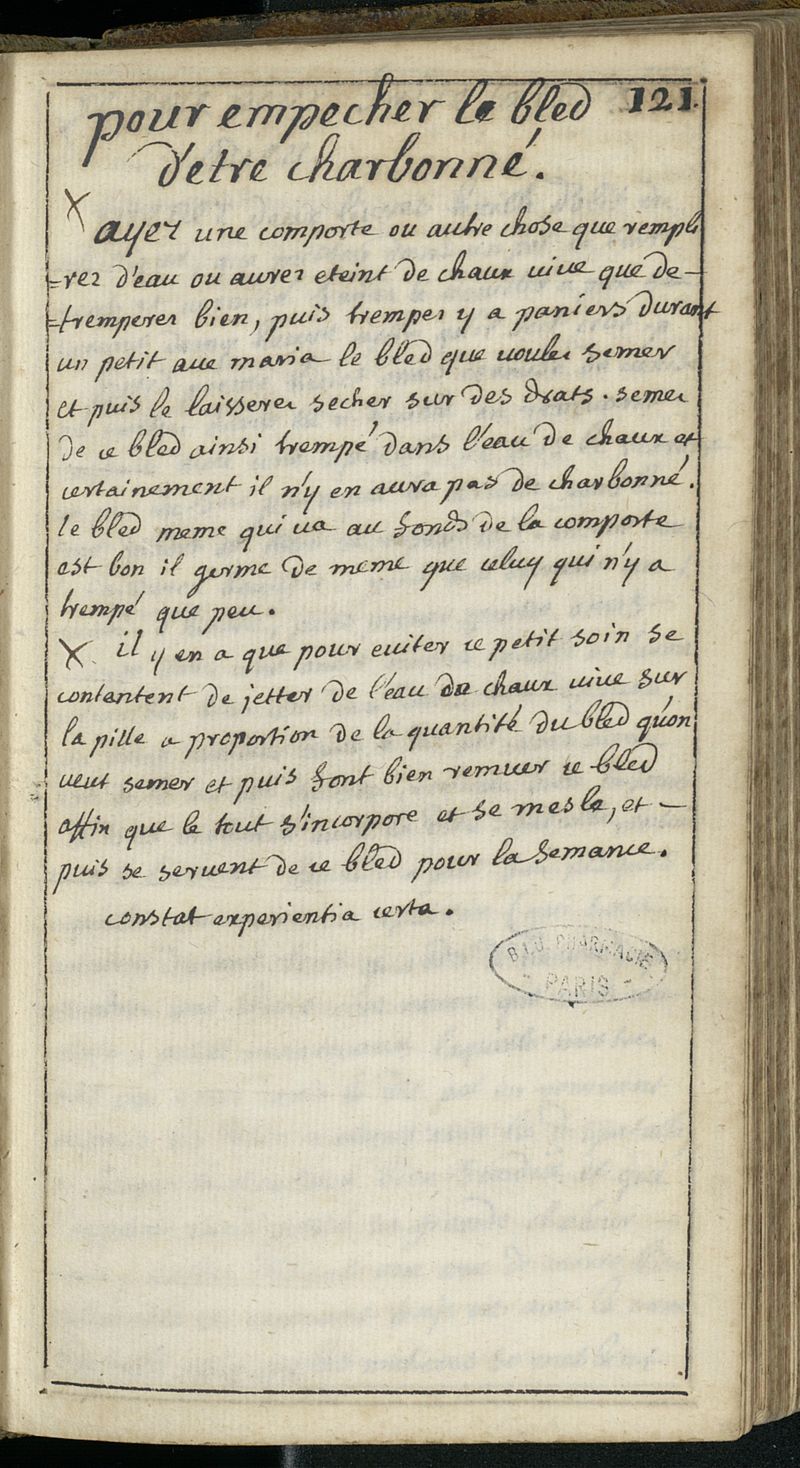 121.
pour empecher le bled
d'etre charbonné.
X ayez une comporte ou autre chose que rempli
=rez d'eau ou aurez eteint de chaux vive que de-
=tremperez bien, puis trempez y a paniers durant
un petit ave maria le bled que voulez semer
et puis le laisserez secher sur des drats. semez
de ce bled ainsi trempé dans l'eau de chaux et
certainement il n'y en aura pas de charbonné.
le bled meme qui va au fonds de la comporte
est bon il germe de meme que celuy qui n'y a
trempé que peu.
X. il y en a que pour eviter ce petit soin se
contentent de jetter de l'eau de chaux vive sur
la pille a proportion de la quantité du bled qu'on
veut semer et puis font bien remuer ce bled
affin que le tout s'incorpore et se mesle, et -
puis se servent de ce bled pour la semance.
constat experientia certa.
B.I.U. PHARMACIE
- PARIS -